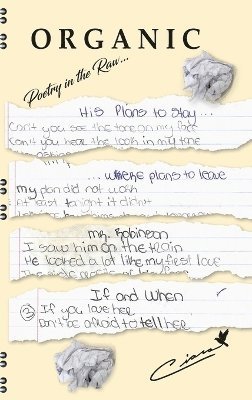 ORGANIC
Poetry in the Raw...
His Plans to Stay...
Can't you see the tone on my face
Can't you hear the look in my tone
...where plans to leave
my plan did not work
At least tonight it didn't
mr. Robinson
I saw him on the train
He looked a lot like my first love
If and When
3 If you love her
Don't be afraid to tell her